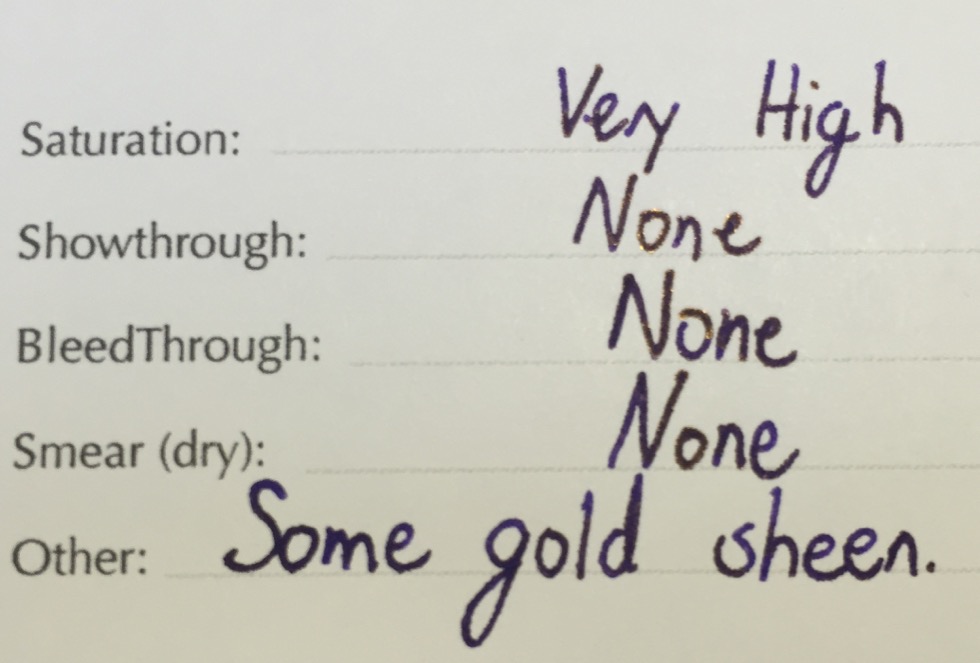 Saturation: Very High
Showthrough: None
BleedThrough: None
Smear (dry): None
Other: Some gold sheen.